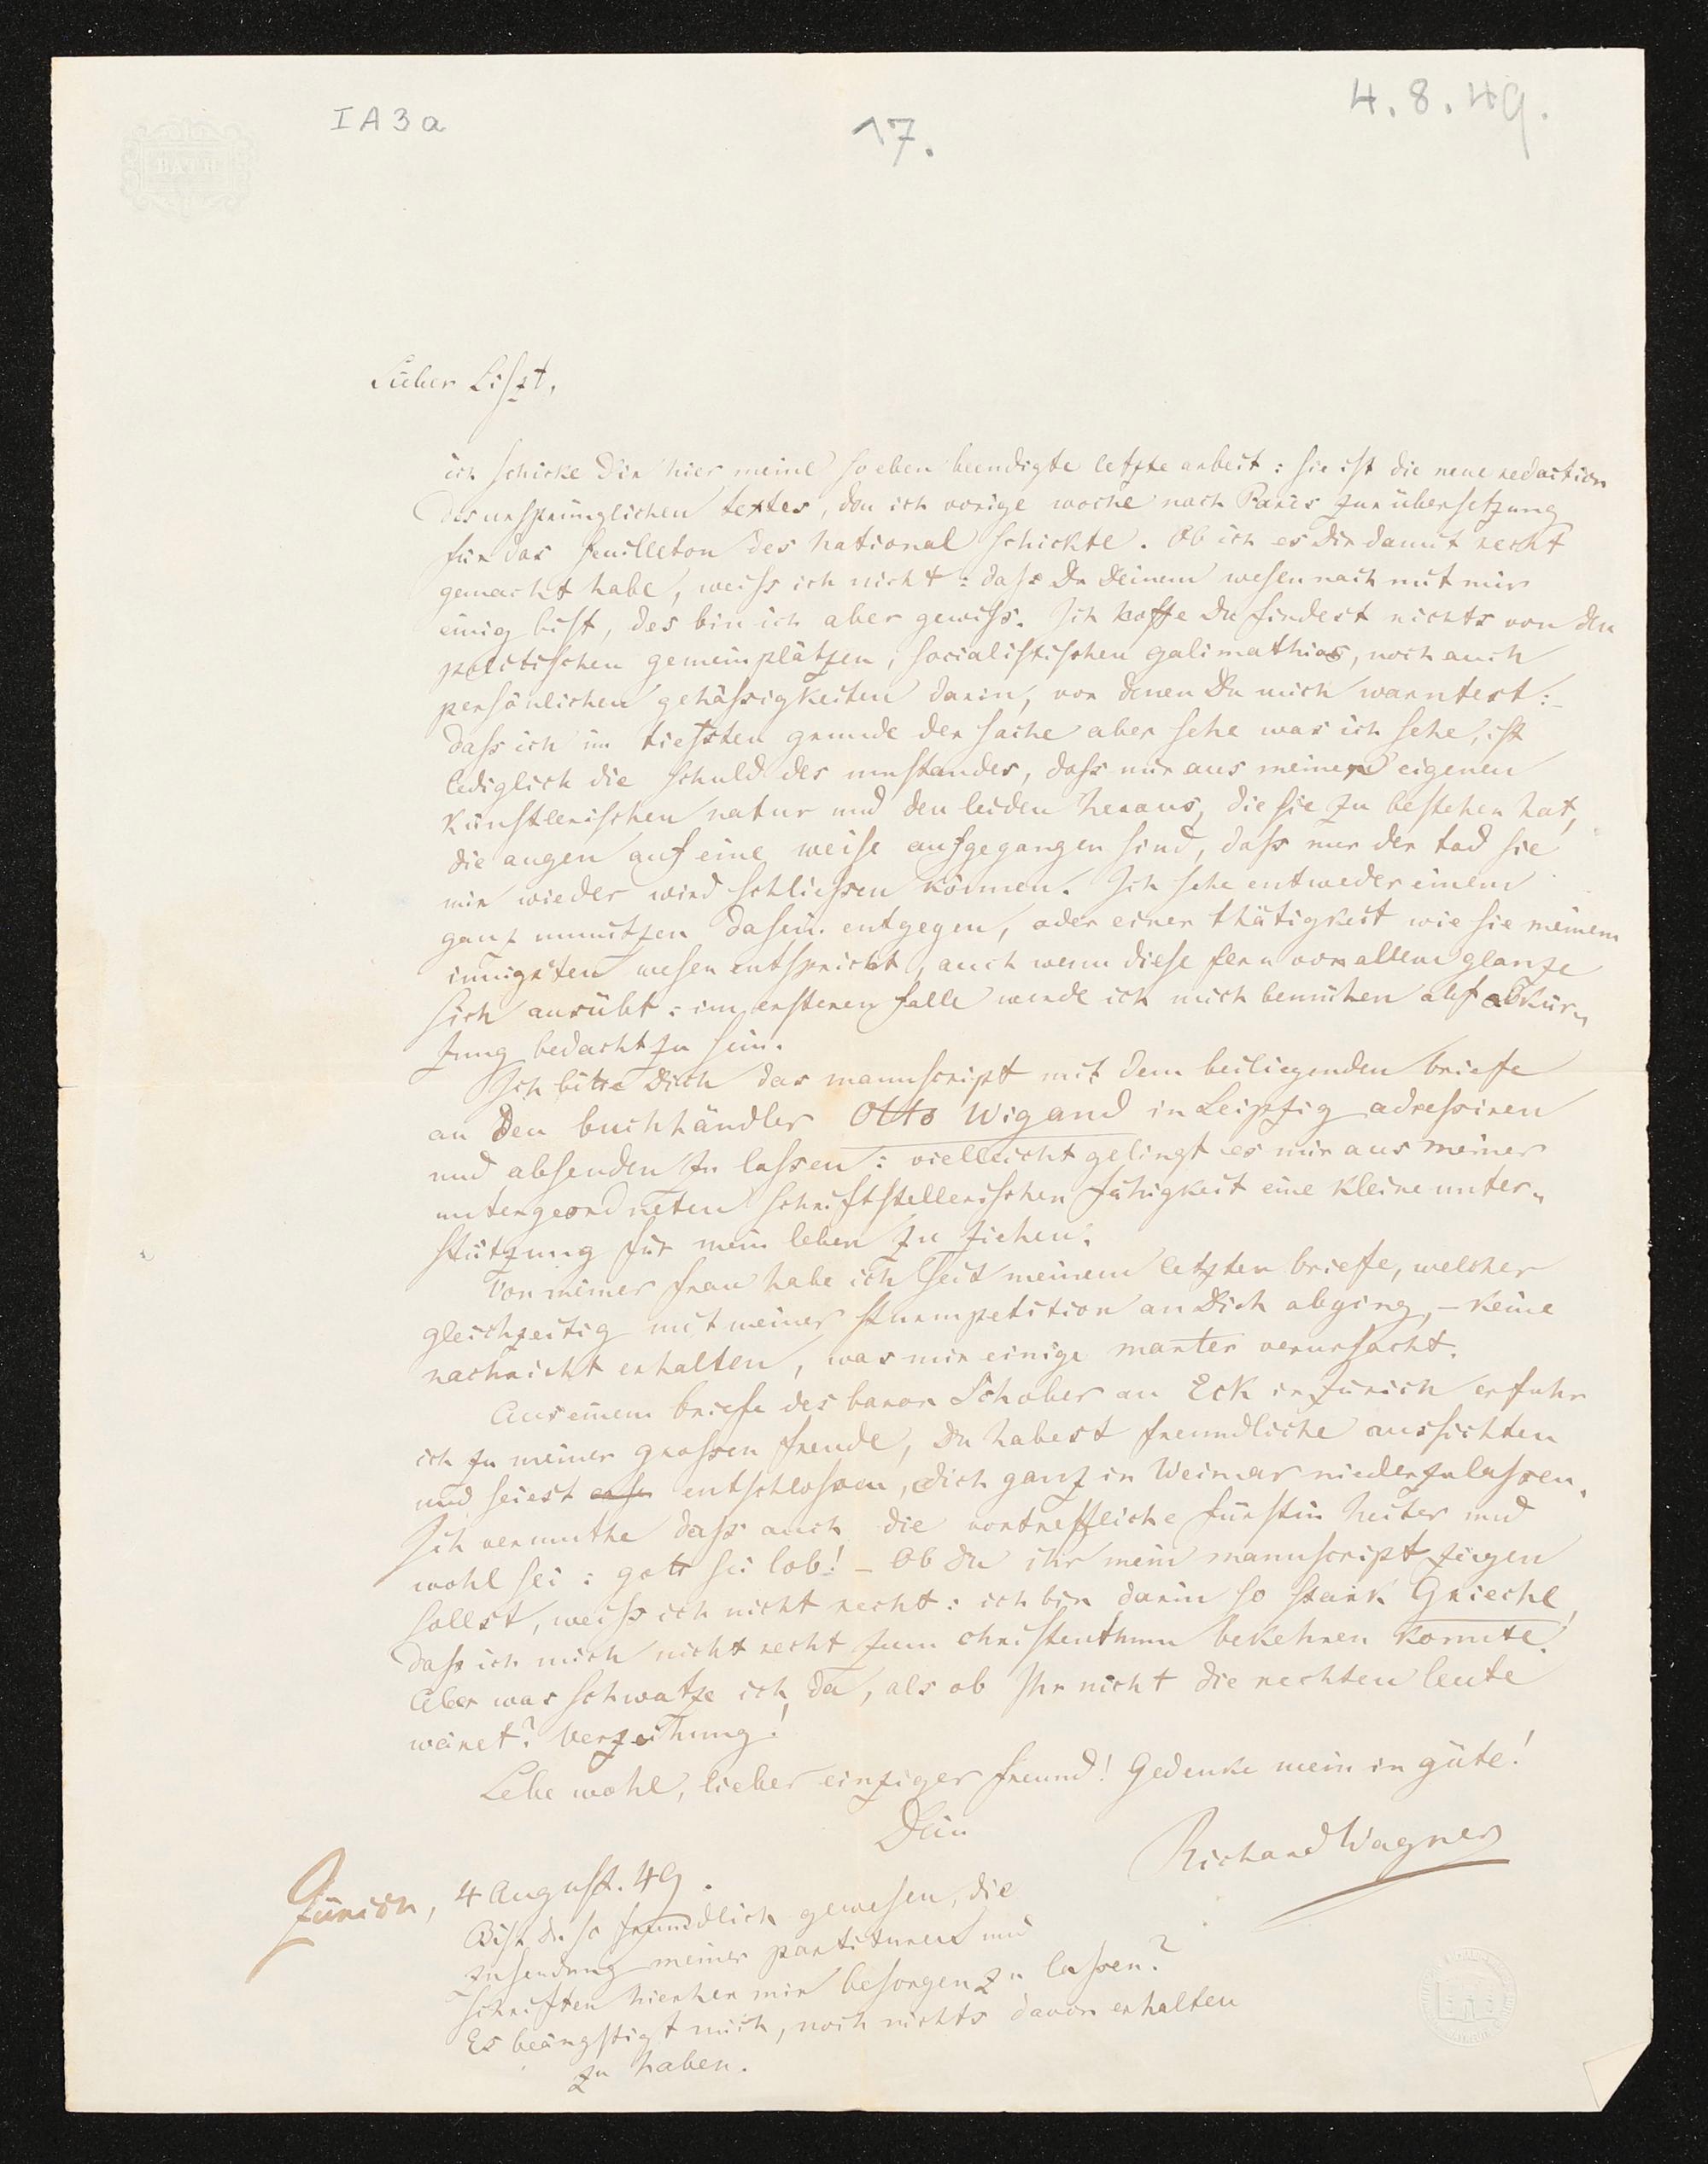 IA3a
17.
4.8.49.
BATH
Lieber Liszt,
ich schicke Dir hier meine soeben beendigte letzte arbeit: sie ist die neue redaction
des ursprünglichen textes, den ich vorige woche nach Paris zur übersetzung
für das feuilleton des national schickte. Ob ich es Dir damit recht
gemacht habe, weiss ich nicht: dass Du Deinem wesen nach mit mir
einig bist, des bin ich aber gewiss. Ich hoffe Du findest nichts von den
politischen gemeinplätzen, socialistischen galimathias, noch auch
persönlichen gehässigkeiten darin, vor denen Du mich warntest:
dass ich im tiefsten grunde der sache aber sehe was ich sehe, ist
lediglich die schuld des umstandes, dass mir aus meiner eigenen
künstlerischen natur und den leiden heraus, die sie zu bestehen hat,
die augen auf eine weise aufgegangen sind, dass nur der tod sie
mir wieder wird schliessen können. Ich sehe entweder einem
ganz unnützen dasein entgegen, oder einer thätigkeit wie sie meinem
innigsten wesen entspricht, auch wenn diese fern von allem glanze
sich ausübt: im ersteren falle werde ich mich bemühen auf abkür-
zung bedacht zu sein.
Ich bitte Dich das manuscript mit dem beiliegenden briefe
an den buchhändler Otto Wigand in Leipzig adressiren
und absenden zu lassen: vielleicht gelingt es mir aus meiner
untergeordneten schriftstellerischen fähigkeit eine kleine unter-
stützung für mein leben zu ziehen.
Von meiner frau habe ich seit meinem letzten briefe, welcher
gleichzeitig mit meiner sturmpetition an Dich abging, – keine
nachricht erhalten, was mir einige marter verursacht.
Aus einem briefe des baron Schober an Eck in Zürich erfuhr
ich zu meiner grossen freude, Du habest freundliche aussichten
und seiest entschlossen, Dich ganz in Weimar niederzulassen.
Ich vermuthe dass auch die vortreffliche fürstin heiter und
wohl sei: gott sei lob! – Ob Du ihr mein manuscript zeigen
sollst, weiss ich nicht recht: ich bin darin so stark Grieche,
dass ich mich nicht recht zum christenthum bekehren konnte.
Aber was schwatze ich da, als ob Ihr nicht die rechten leute
wäret? Verzeihung!
Lebe wohl, lieber einziger freund! Gedenke mein in güte!
Dein
Richard Wagner
Zürich, 4 August. 49.
Bist du so freundlich gewesen, die
zusendung meiner partituren und
schriften hierher mir besorgen zu lassen?
Es beängstigt mich, noch nichts davon erhalten
zu haben.